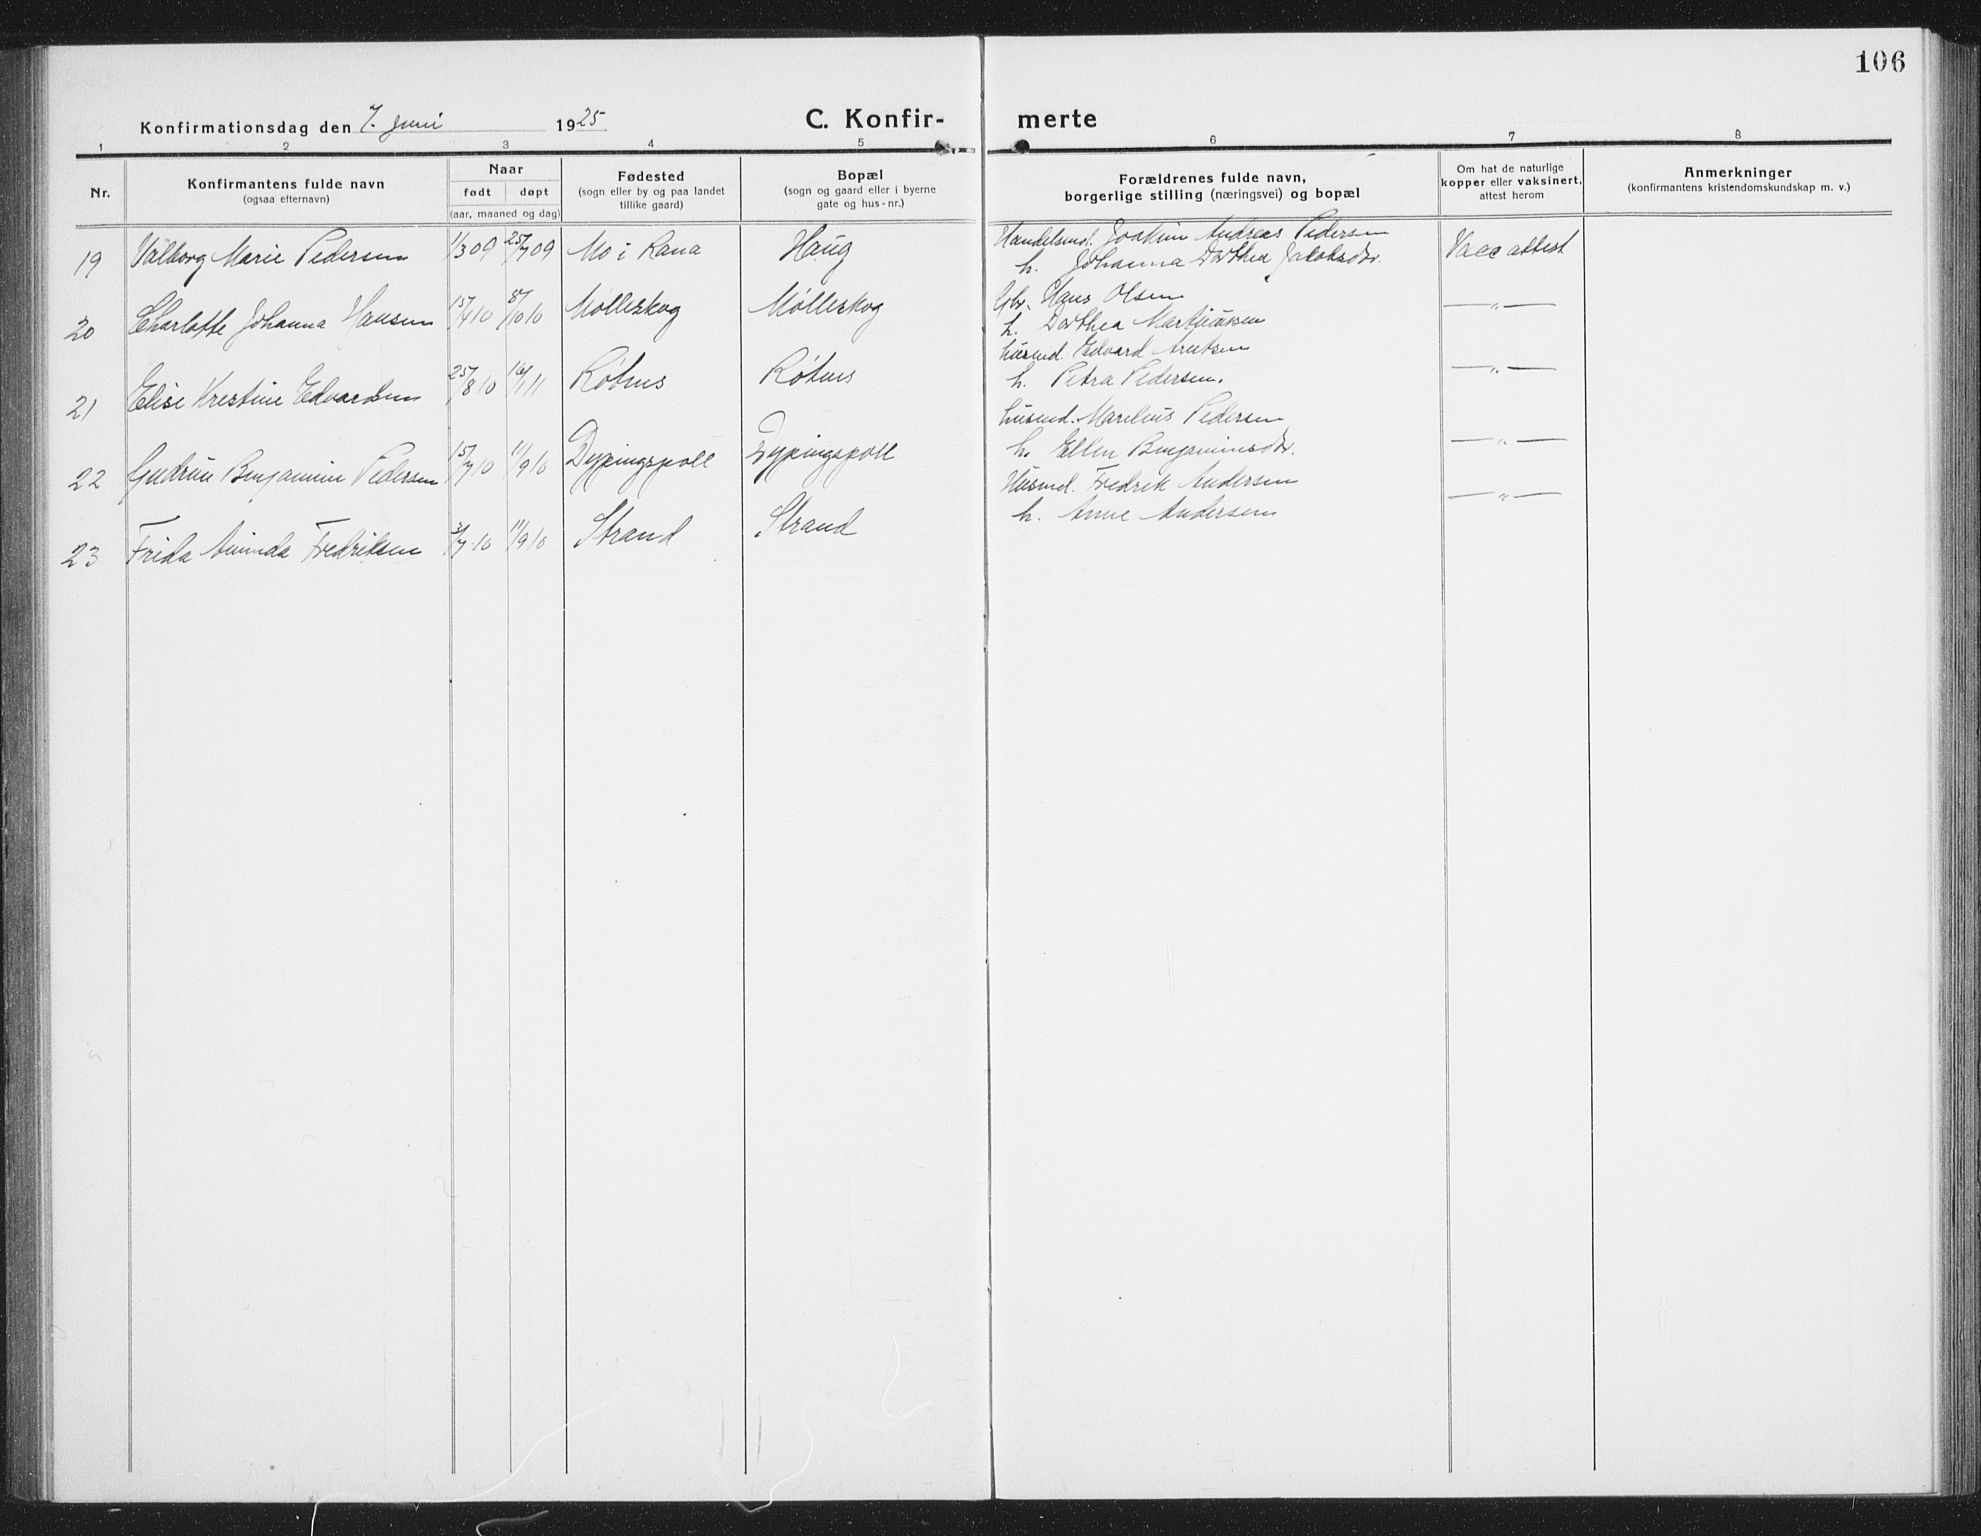 106
Konfirmationsdag den 7. juni 1925
C. Konfir- merte
1 2 3 4 5 6 7 8
Nr.
Konfirmantens fulde navn
(ogsaa efternavn)
Naar
født døpt
(aar, maaned og dag)
Fødested
(sogn eller by og paa landet
tillike gaard)
Bopæl
(sogn og gaard eller i byerne
gate og hus-nr.)
Forældrenes fulde navn,
borgerlige stilling (næringsvei) og bopæl
Om hat de naturlige
kopper eller vaksinert,
attest herom
Anmerkninger
(konfirmantens kristendomskundskap m. v.)
19 Valborg Marie Pedersen 1/3 09 25/7 09 Mo i Rana Haug Handelsmd. Joakim Andreas Pedersen Vacc attest
h. Johanna Dorthea Jakobsdr.
20 Charlotte Johanna Hansen 15/4 10 8/10 10 Mølleskog Mølleskog Gbr. Hans Olsen — „ —
h. Dorthea
21 Elise Krestine Edvardsen 25/8 10 16/1 11 Husmd. Edvard — „ —
h. Petra Pedersen.
22 Gudrun Benjamine Pedersen 15/7 10 11/9 10 Dypingspoll Dypingspoll Husmd. Marelius Pedersen — „ —
h. Ellen Benjaminsdr.
23 Frida Aminda Fredriksen 3/7 10 11/9 10 Strand Strand Husmd. Fredrik Andersen — „ —
h. Anne Andersen